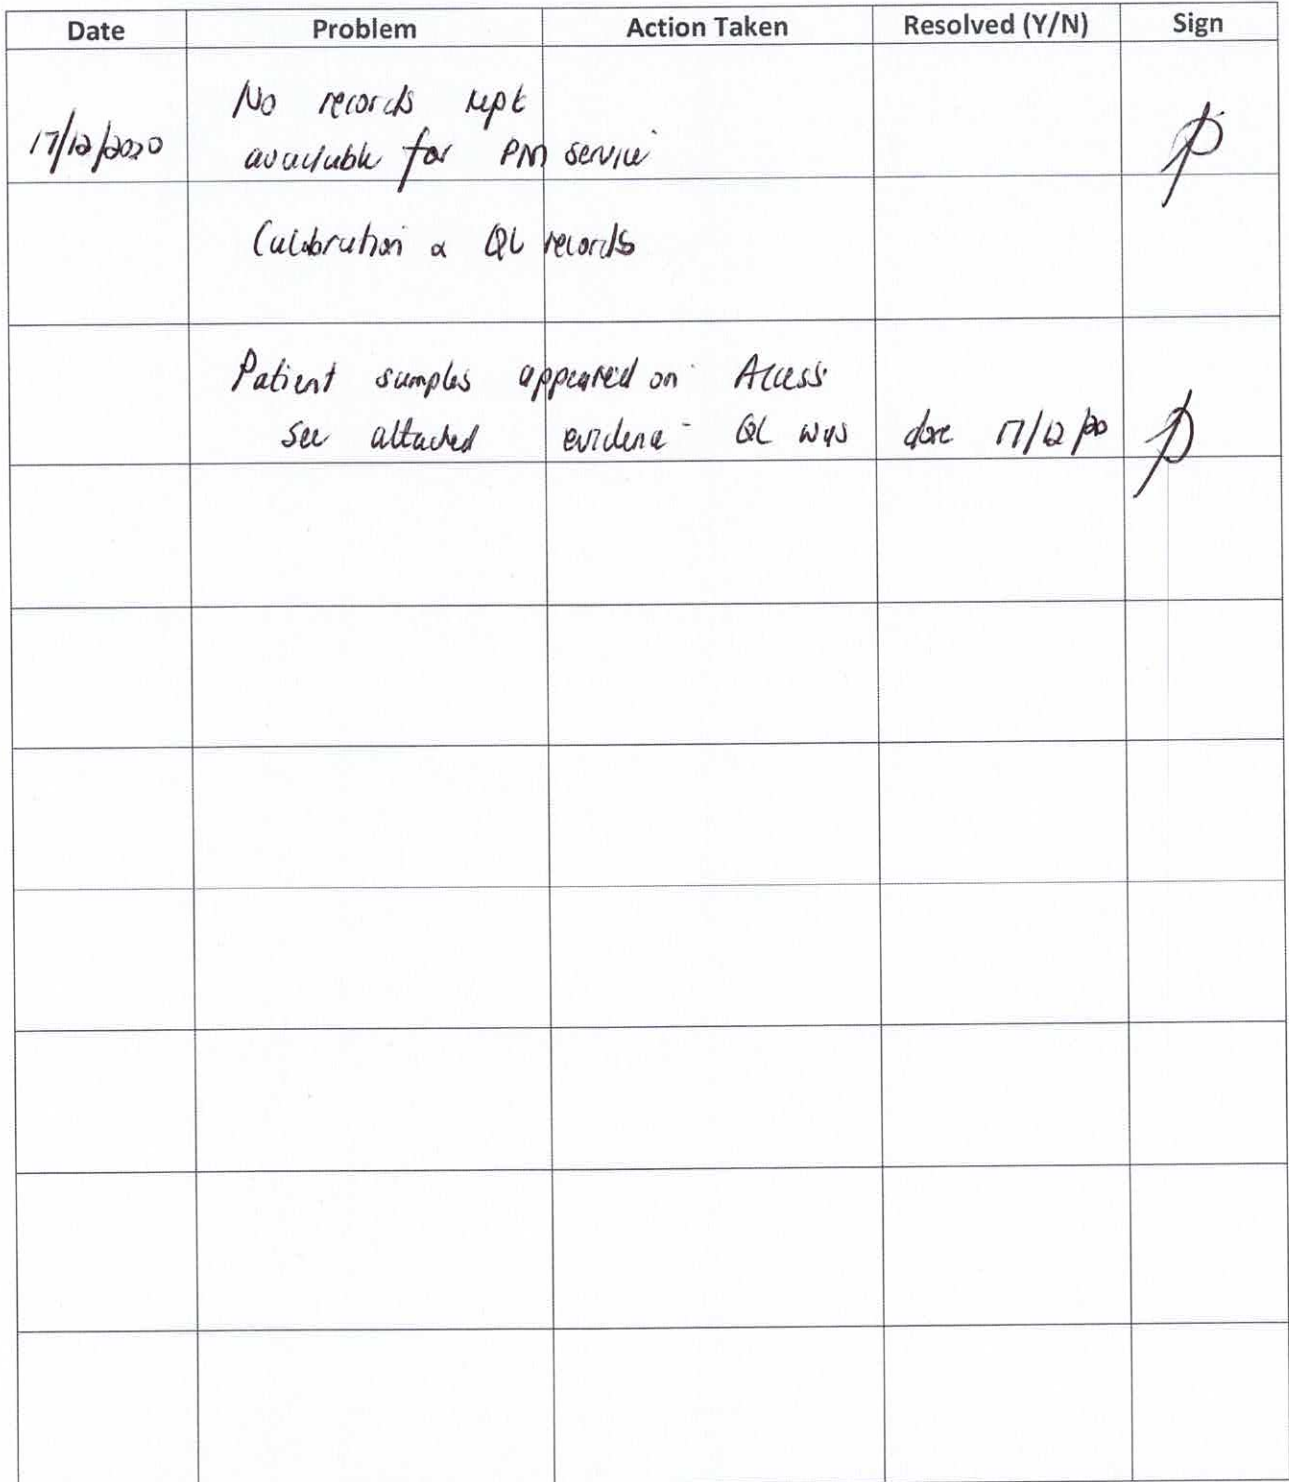 Date Problem Action Taken Resolved (Y/N) Sign
No records kept
17/12/2020 available for PM service
Calibration & QC records
Patient samples appeared on Access
see attached evidence - QC was done 17/12/20